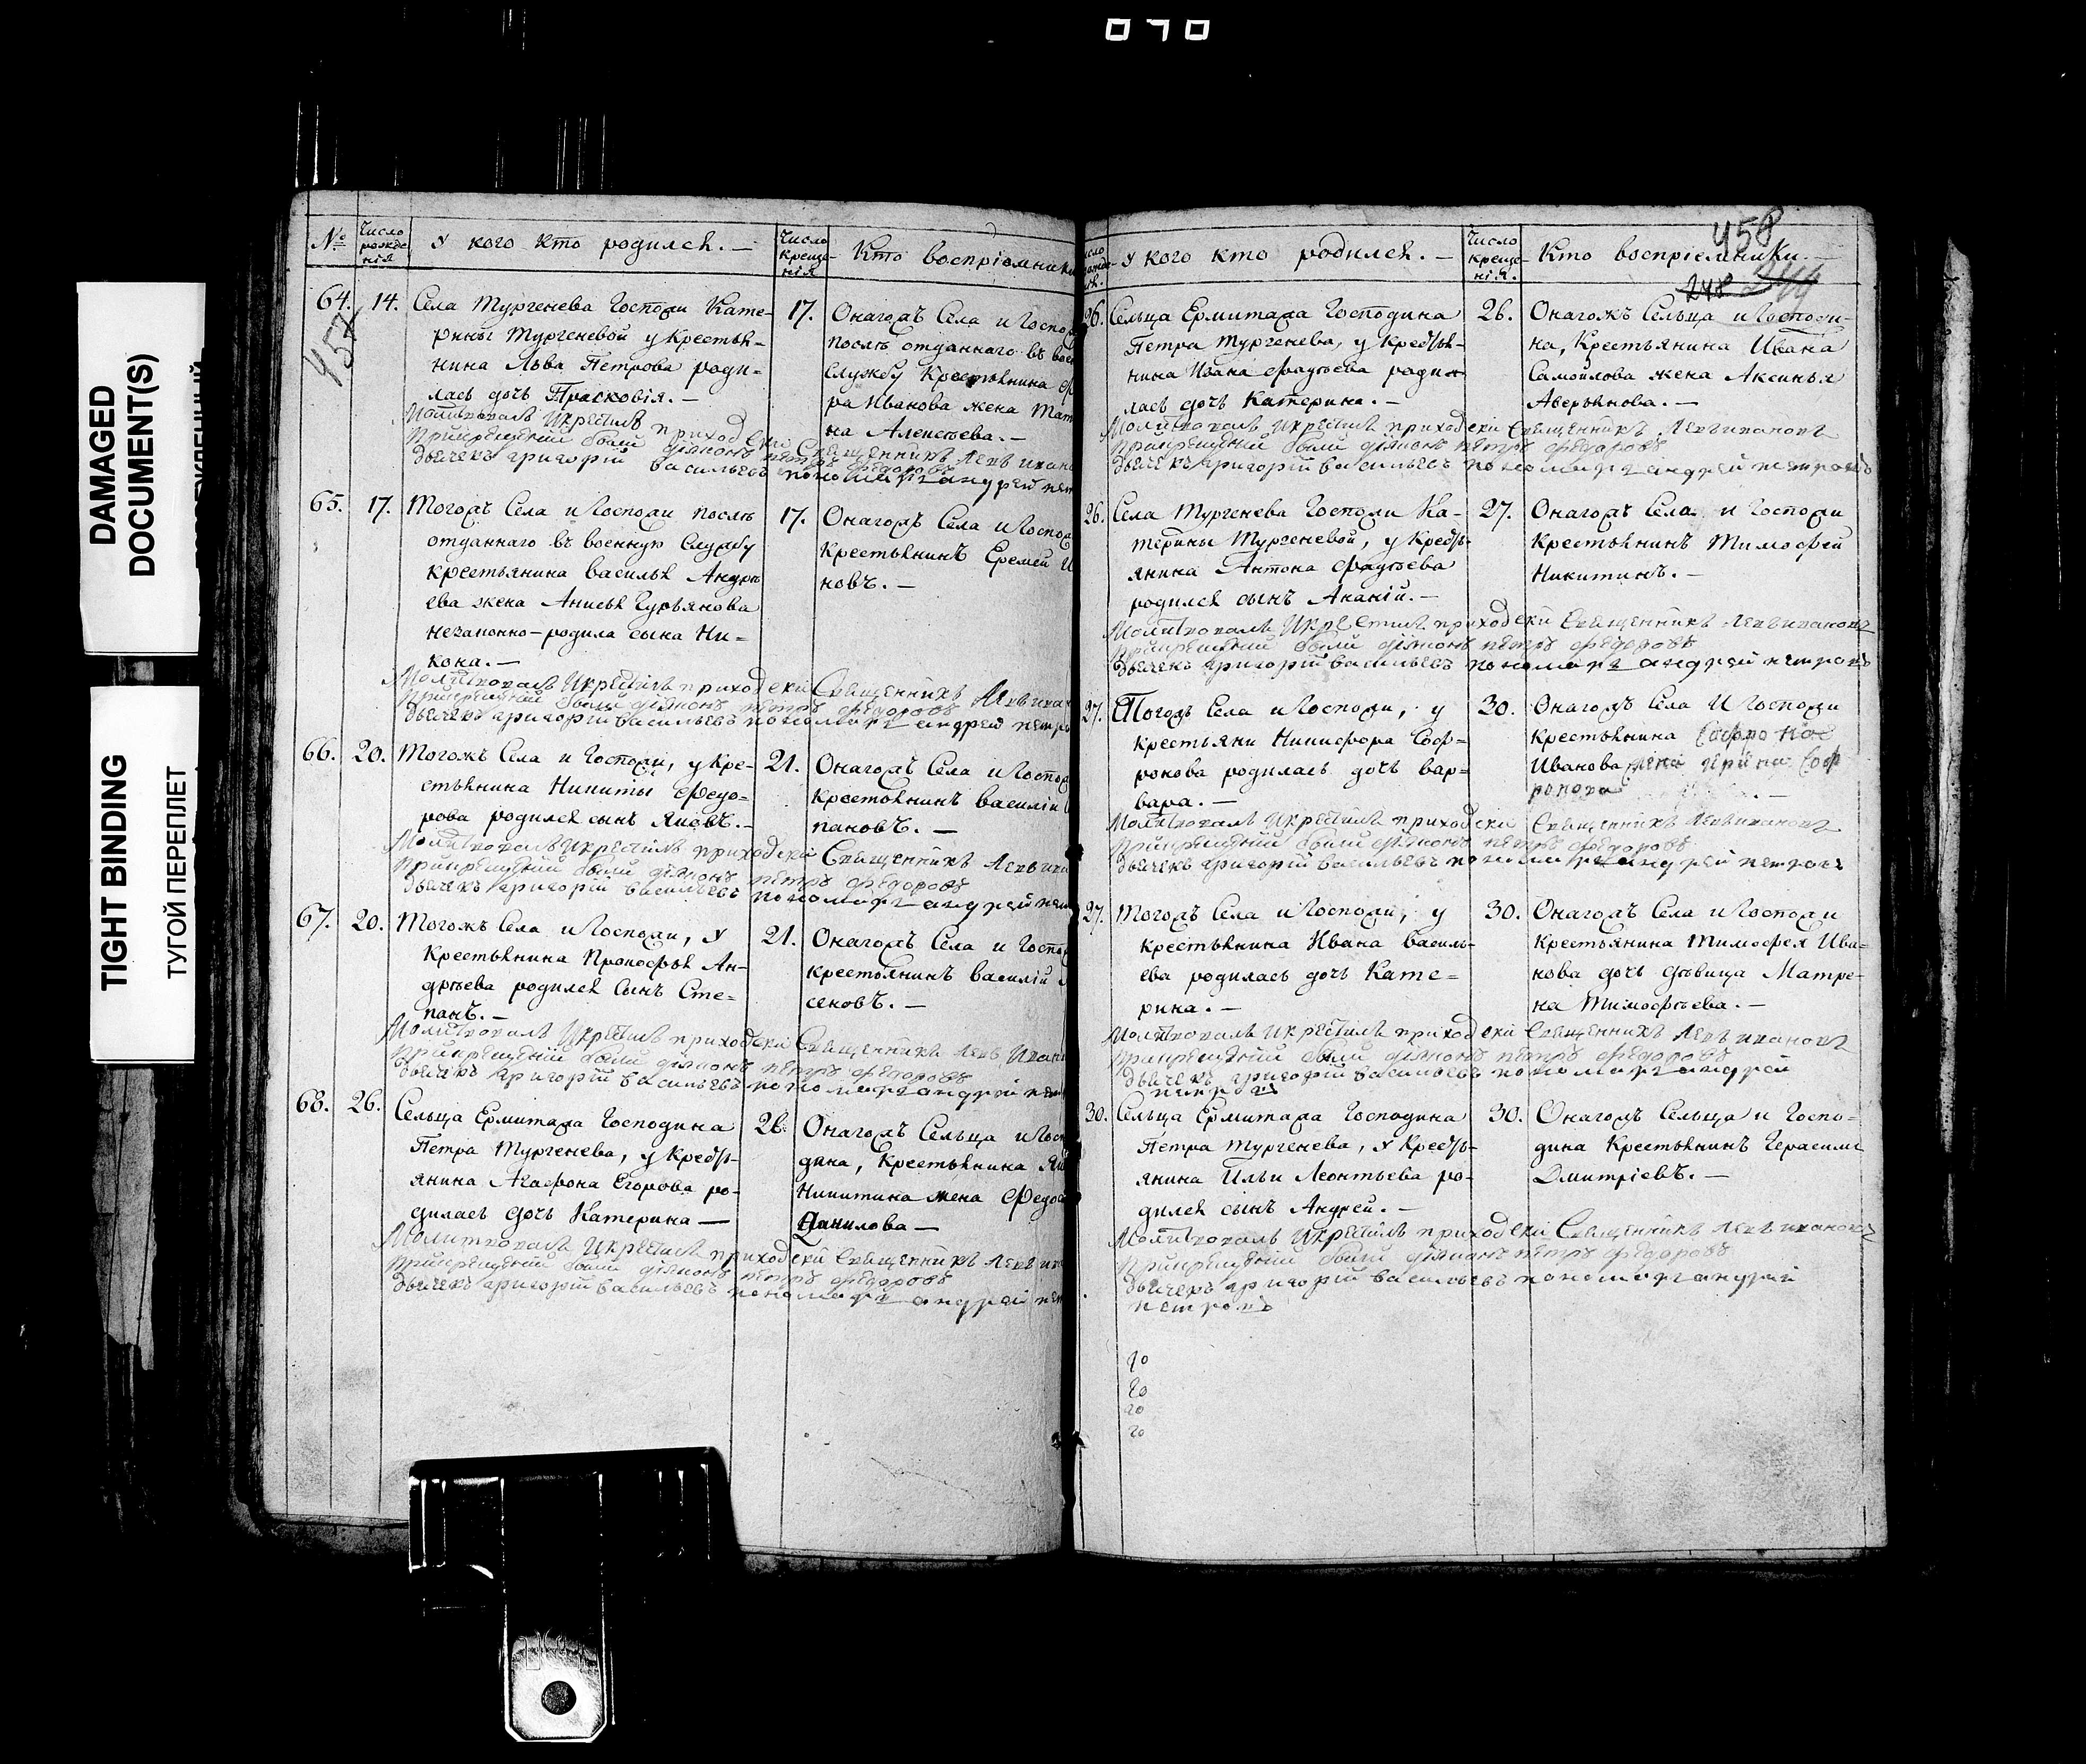 070
DAMAGED
DOCUMENT(S)
TIGHT BINDING
ТУГОЙ ПЕРЕПЛЕТ
457
№
Число
рожде
нія
У кого кто родился. —
Число
креще-
нія
Кто воспріемники
64.
14.
Села Тургенева Госпожи Кате-
рины Тургеневой у Крестья-
нина Льва Петрова роди-
лась дочь Прасковія. —
17.
Онагожъ Села и Госпо
послѣ отданнаго въ
службу Крестьянина
ра Иванова жена Мат
на Алексѣева. —
Молитвовалъ Икрестилъ приходскій Священникъ Левъ Иван
Прикрещеніи были діяконъ петръ федоровъ
дьячекъ григорій васильевъ пономарь андрей пет
65.
17.
Тогожъ Села и Госпожи послѣ
отданнаго въ военную службу
крестьянина василья Андрѣ
ева жена Анисья Гурьянова
незаконно-родила сына Ни-
кона. —
17.
Онагожъ Села и Госпо
Крестьянинъ Еремей И
новъ. —
Молитвовалъ Икрестилъ приходскій Священникъ Левъ Иван
Прикрещеніи были діяконъ петръ федоровъ
дьячекъ григорій васильевъ пономарь андрей петр
66.
20.
Тогожъ Села и Госпожи, у Кре-
стьянина Никиты Федо-
рова родился сынъ Яковъ. —
21.
Онагожъ Села и Госпо
крестьянинъ василій
пановъ. —
Молитвовалъ Икрестилъ приходскій Священникъ Левъ Ива
Прикрещеніи были діяконъ петръ федоровъ
дьячекъ григорій васильевъ пономарь андрей пет
67.
20.
Тогожъ Села и Госпожи, у
Крестьянина Прокофья Ан-
дрѣева родился сынъ Сте-
панъ. —
21.
Онагожъ Села и Госпо
крестьянинъ василій
сеновъ. —
Молитвовалъ Икрестилъ приходскій Священникъ Левъ Иван
Прикрещеніи были діяконъ петръ федоровъ
дьячекъ григорій васильевъ пономарь андрей пет
68.
26.
Сельца Ермитажа Господина
Петра Тургенева, у Кресть-
янина Агафона Егорова ро-
дилась дочь Катерина —
26.
Онагожъ Сельца и Гос
дина, Крестьянина
Никитина жена Федо
Данилова —
Молитвовалъ Икрестилъ приходскій Священникъ Левъ Ива
Прикрещеніи были діяконъ петръ федоровъ
дьячекъ григорій васильевъ пономарь андрей пет
458
248 244
У кого кто родился. —
Число
креще-
нія.
Кто воспріемники. —
26.
Сельца Ермитажа Господина
Петра Тургенева, у Кресть-
нина Ивана Фадѣева роди
лась дочь Катерина. —
26.
Онагожъ Сельца и Господи-
на, Крестьянина Ивана
Самойлова жена Аксинья
Аверьянова. —
Молитвовалъ Икрестилъ приходскій Священникъ Левъ Ивановъ
Прикрещеніи были діяконъ петръ федоровъ
дьячекъ григорій васильевъ пономарь андрей петровъ
26.
Села Тургенева Госпожи Ка-
терины Тургеневой, у Кресть-
янина Антона Фадѣева
родился сынъ Ананій. —
27.
Онагожъ Села и Госпожи
Крестьянинъ Тимофей
Никитинъ. —
Молитвовалъ Икрестилъ приходскій Священникъ Левъ Ивановъ
Прикрещеніи были діяконъ петръ федоровъ
дьячекъ григорій васильевъ пономарь андрей петровъ
27.
Тогожъ Села и Госпожи, у
крестьяни Никифора Соф-
ронова родилась дочь вар-
вара. —
30.
Онагожъ Села и Госпожи
крестьянина Софро
Иванова жена Ирина Соф
ронова —
Молитвовалъ Икрестилъ приходскій Священникъ Левъ Ивановъ
Прикрещеніи были діяконъ петръ федоровъ
дьячекъ григорій васильевъ пономарь андрей петровъ
27.
Тогожъ Села и Госпожи, у
крестьянина Ивана василь-
ева родилась дочь Кате-
рина. —
30.
Онагожъ Села и Госпожи
Крестьянина Тимофея Ива-
нова дочь дѣвица Матре-
на Тимофѣева. —
Молитвовалъ Икрестилъ приходскій Священникъ Левъ Ивановъ
Прикрещеніи были діяконъ петръ федоровъ
дьячекъ григорій васильевъ пономарь андрей
петровъ
30.
Сельца Ермитажа Господина
Петра Тургенева, у Кресть-
янина Ильи Леонтьева ро-
дился сынъ Андрей. —
30.
Онагожъ Сельца и Госпо-
дина Крестьянинъ Герасимъ
Дмитріевъ. —
Молитвовалъ Икрестилъ приходскій Священникъ Левъ Ивановъ
Прикрещеніи были діяконъ петръ федоровъ
дьячекъ григорій васильевъ пономарь андрей
петровъ